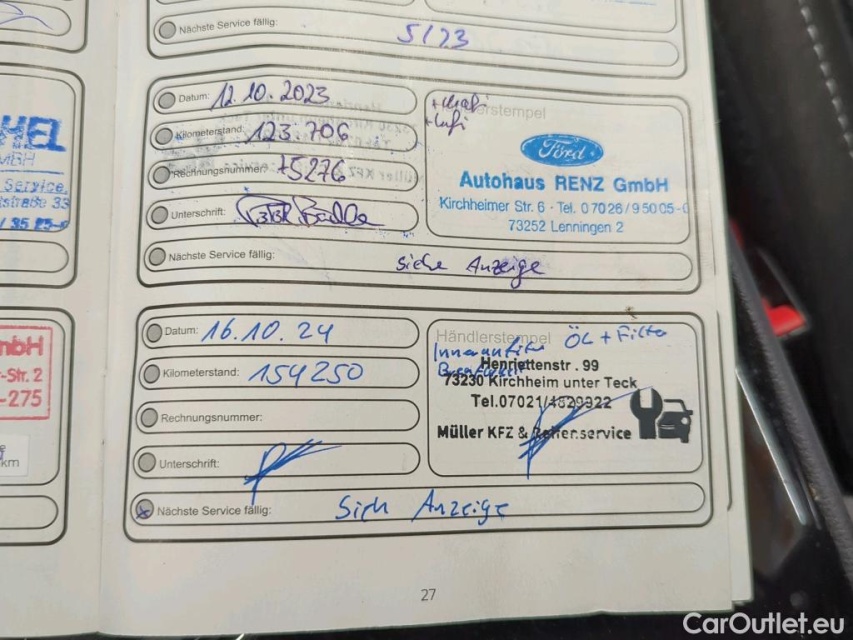 Nächste Service fällig:
5/23
HEL
MBH
Service,
Datum: 12.10.2023
Kilometerstand: 123 706
Rechnungsnummer: 75276
Unterschrift:
Nächste Service fällig: Siehe Anzeige
Händlerstempel
Ford
Autohaus RENZ GmbH
Kirchheimer Str. 6 · Tel. 0 70 26 / 9 50 05-0
73252 Lenningen 2
-Str. 2
-275
km
Datum: 16.10.24
Kilometerstand: 154250
Rechnungsnummer:
Unterschrift:
Nächste Service fällig: Sieh Anzeige
Händlerstempel
Öl + Filter
Henriettenstr . 99
73230 Kirchheim unter Teck
Tel.07021/4829922
Müller KFZ & Reifenservice
27
CarOutlet.eu